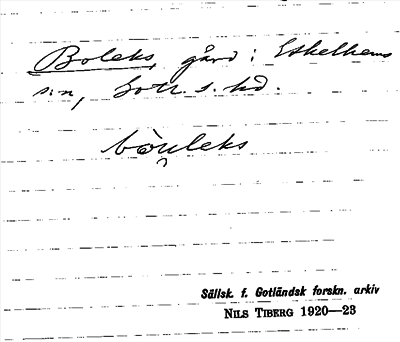 Boleks, gård i Eskelhems
sn, Gotl. s. hd.
bòu̯leks
Sällsk. f. Gotländsk forskn. arkiv
NILS TIBERG 1920—23